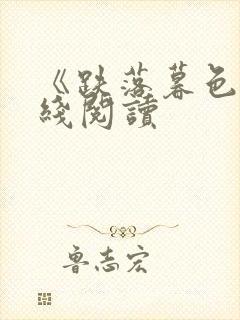 《跌落暮色
线阅读
鲁志宏